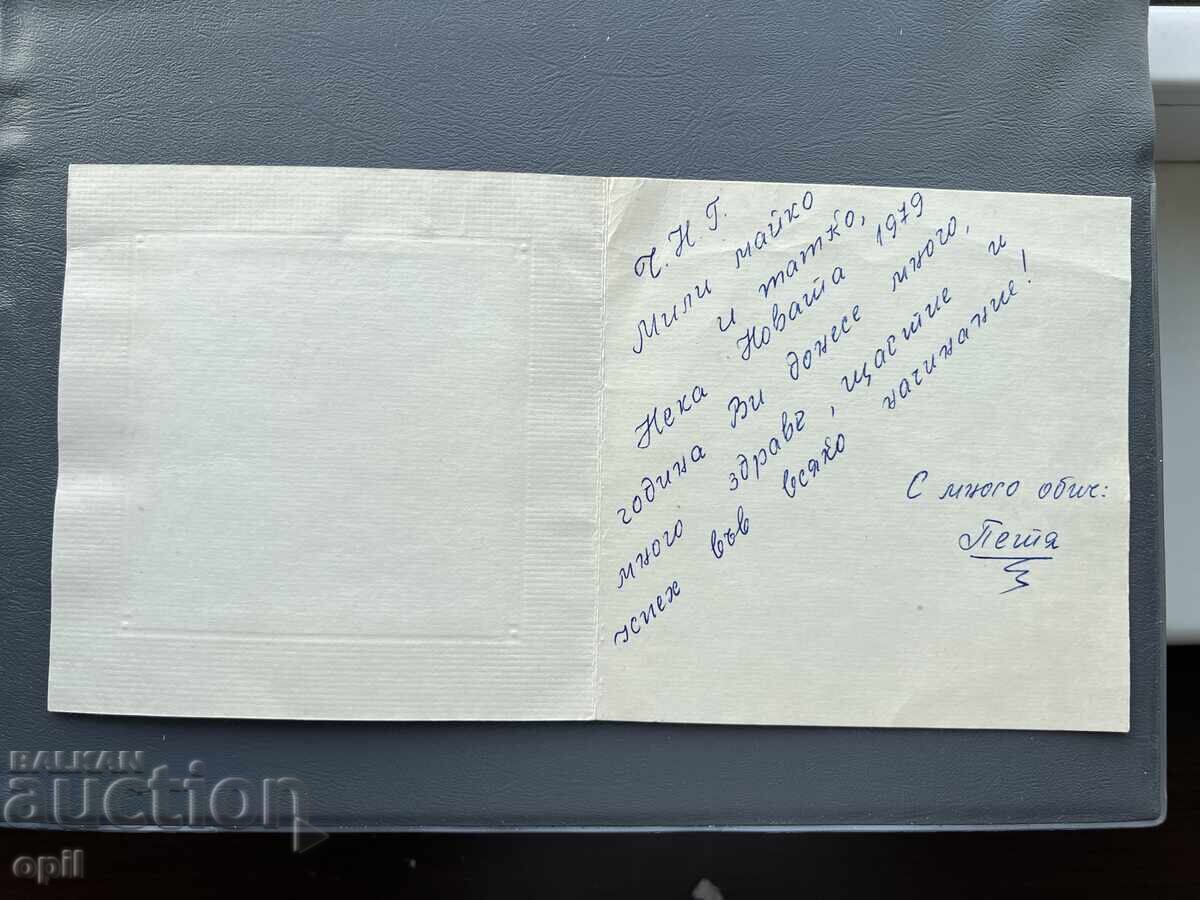 Ч.Н.Г.
Мили майко
и татко,
Нека Новата 1979
година Ви донесе много,
много здраве, щастие и
успех във всяко начинание!
С много обич:
Петя
BALKAN
auction
opil